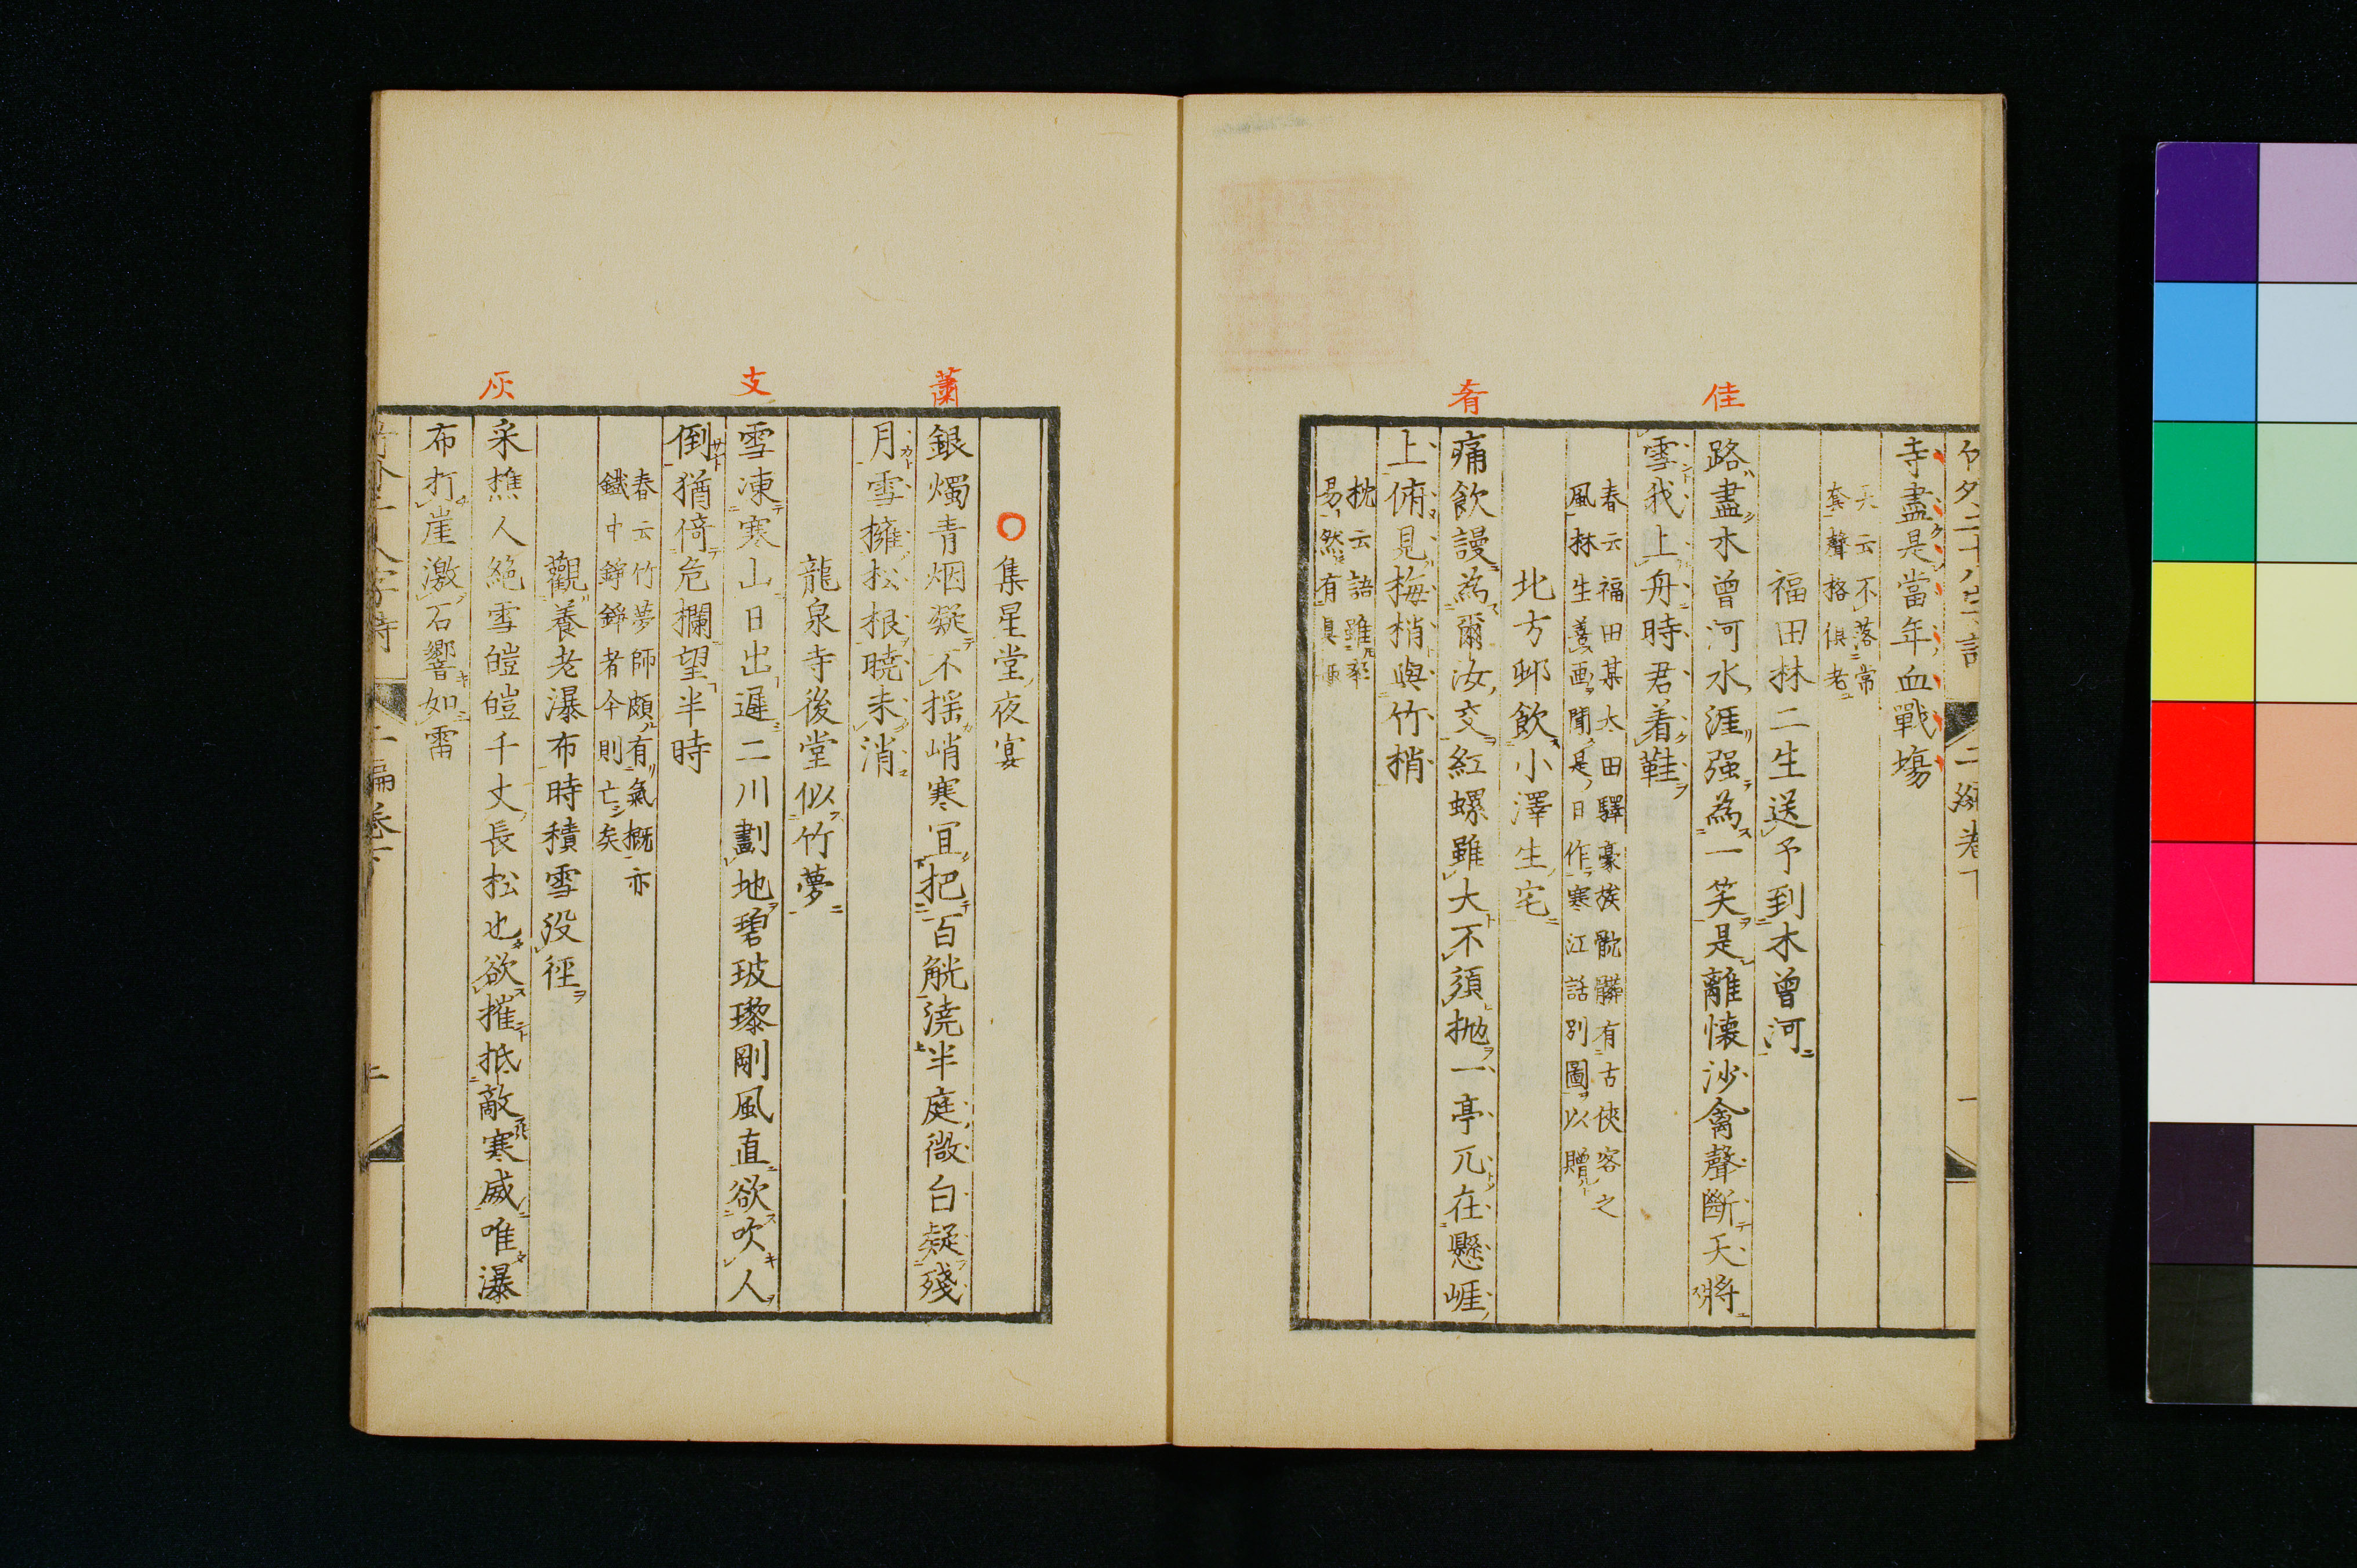 寺盡是當年血戰塲
天云不落常
套聲格俱老
福田林二生送予到木曽河
佳
路盡木曽河水涯强為一笑是離懷沙禽聲斷天將
雪我上舟時君着鞋
春云福田某太田驛豪族骯髒有古俠客之
風林生善画聞是日作寒江話别圖以贈
北方邨飲小澤生宅
肴
痛飲謾為爾汝交紅螺雖大不須抛一亭兀在懸崕
上俯見梅梢與竹梢
枕云語雖
易然有真
集星堂夜宴
蕭
銀燭青烟凝不揺峭寒宜把百觥澆半庭微白疑殘
月雪擁松根曉未消
龍泉寺後堂似竹夢
支
雪凍寒山日出遲二川劃地碧玻瓈剛風直欲吹人
倒猶倚危欄望半時
春云竹夢師頗有氣概亦
鐵中錚錚者今則亡矣
觀養老瀑布時積雪没徑
灰
采樵人絶雪皚皚千丈長松也欲摧抵敵寒威唯瀑
布打崖激石響如雷